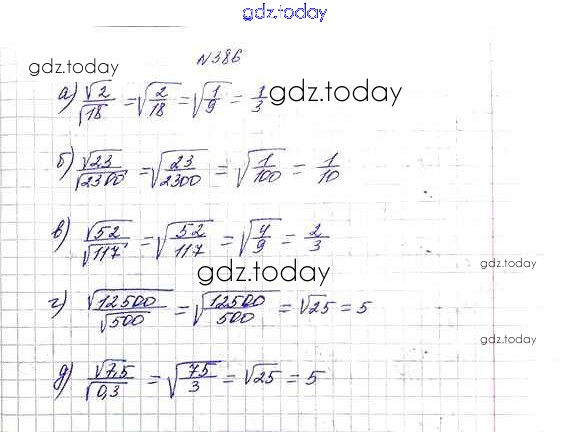 gdz.today
N 386
gdz.today
а) √2/√18 = √(2/18) = √(1/9) = 1/3
gdz.today
б) √23/√2300 = √(23/2300) = √(1/100) = 1/10
в) √52/√117 = √(52/117) = √(4/9) = 2/3
gdz.today
gdz.today
г) √12500/√500 = √(12500/500) = √25 = 5
gdz.today
д) √7,5/√0,3 = √(75/3) = √25 = 5